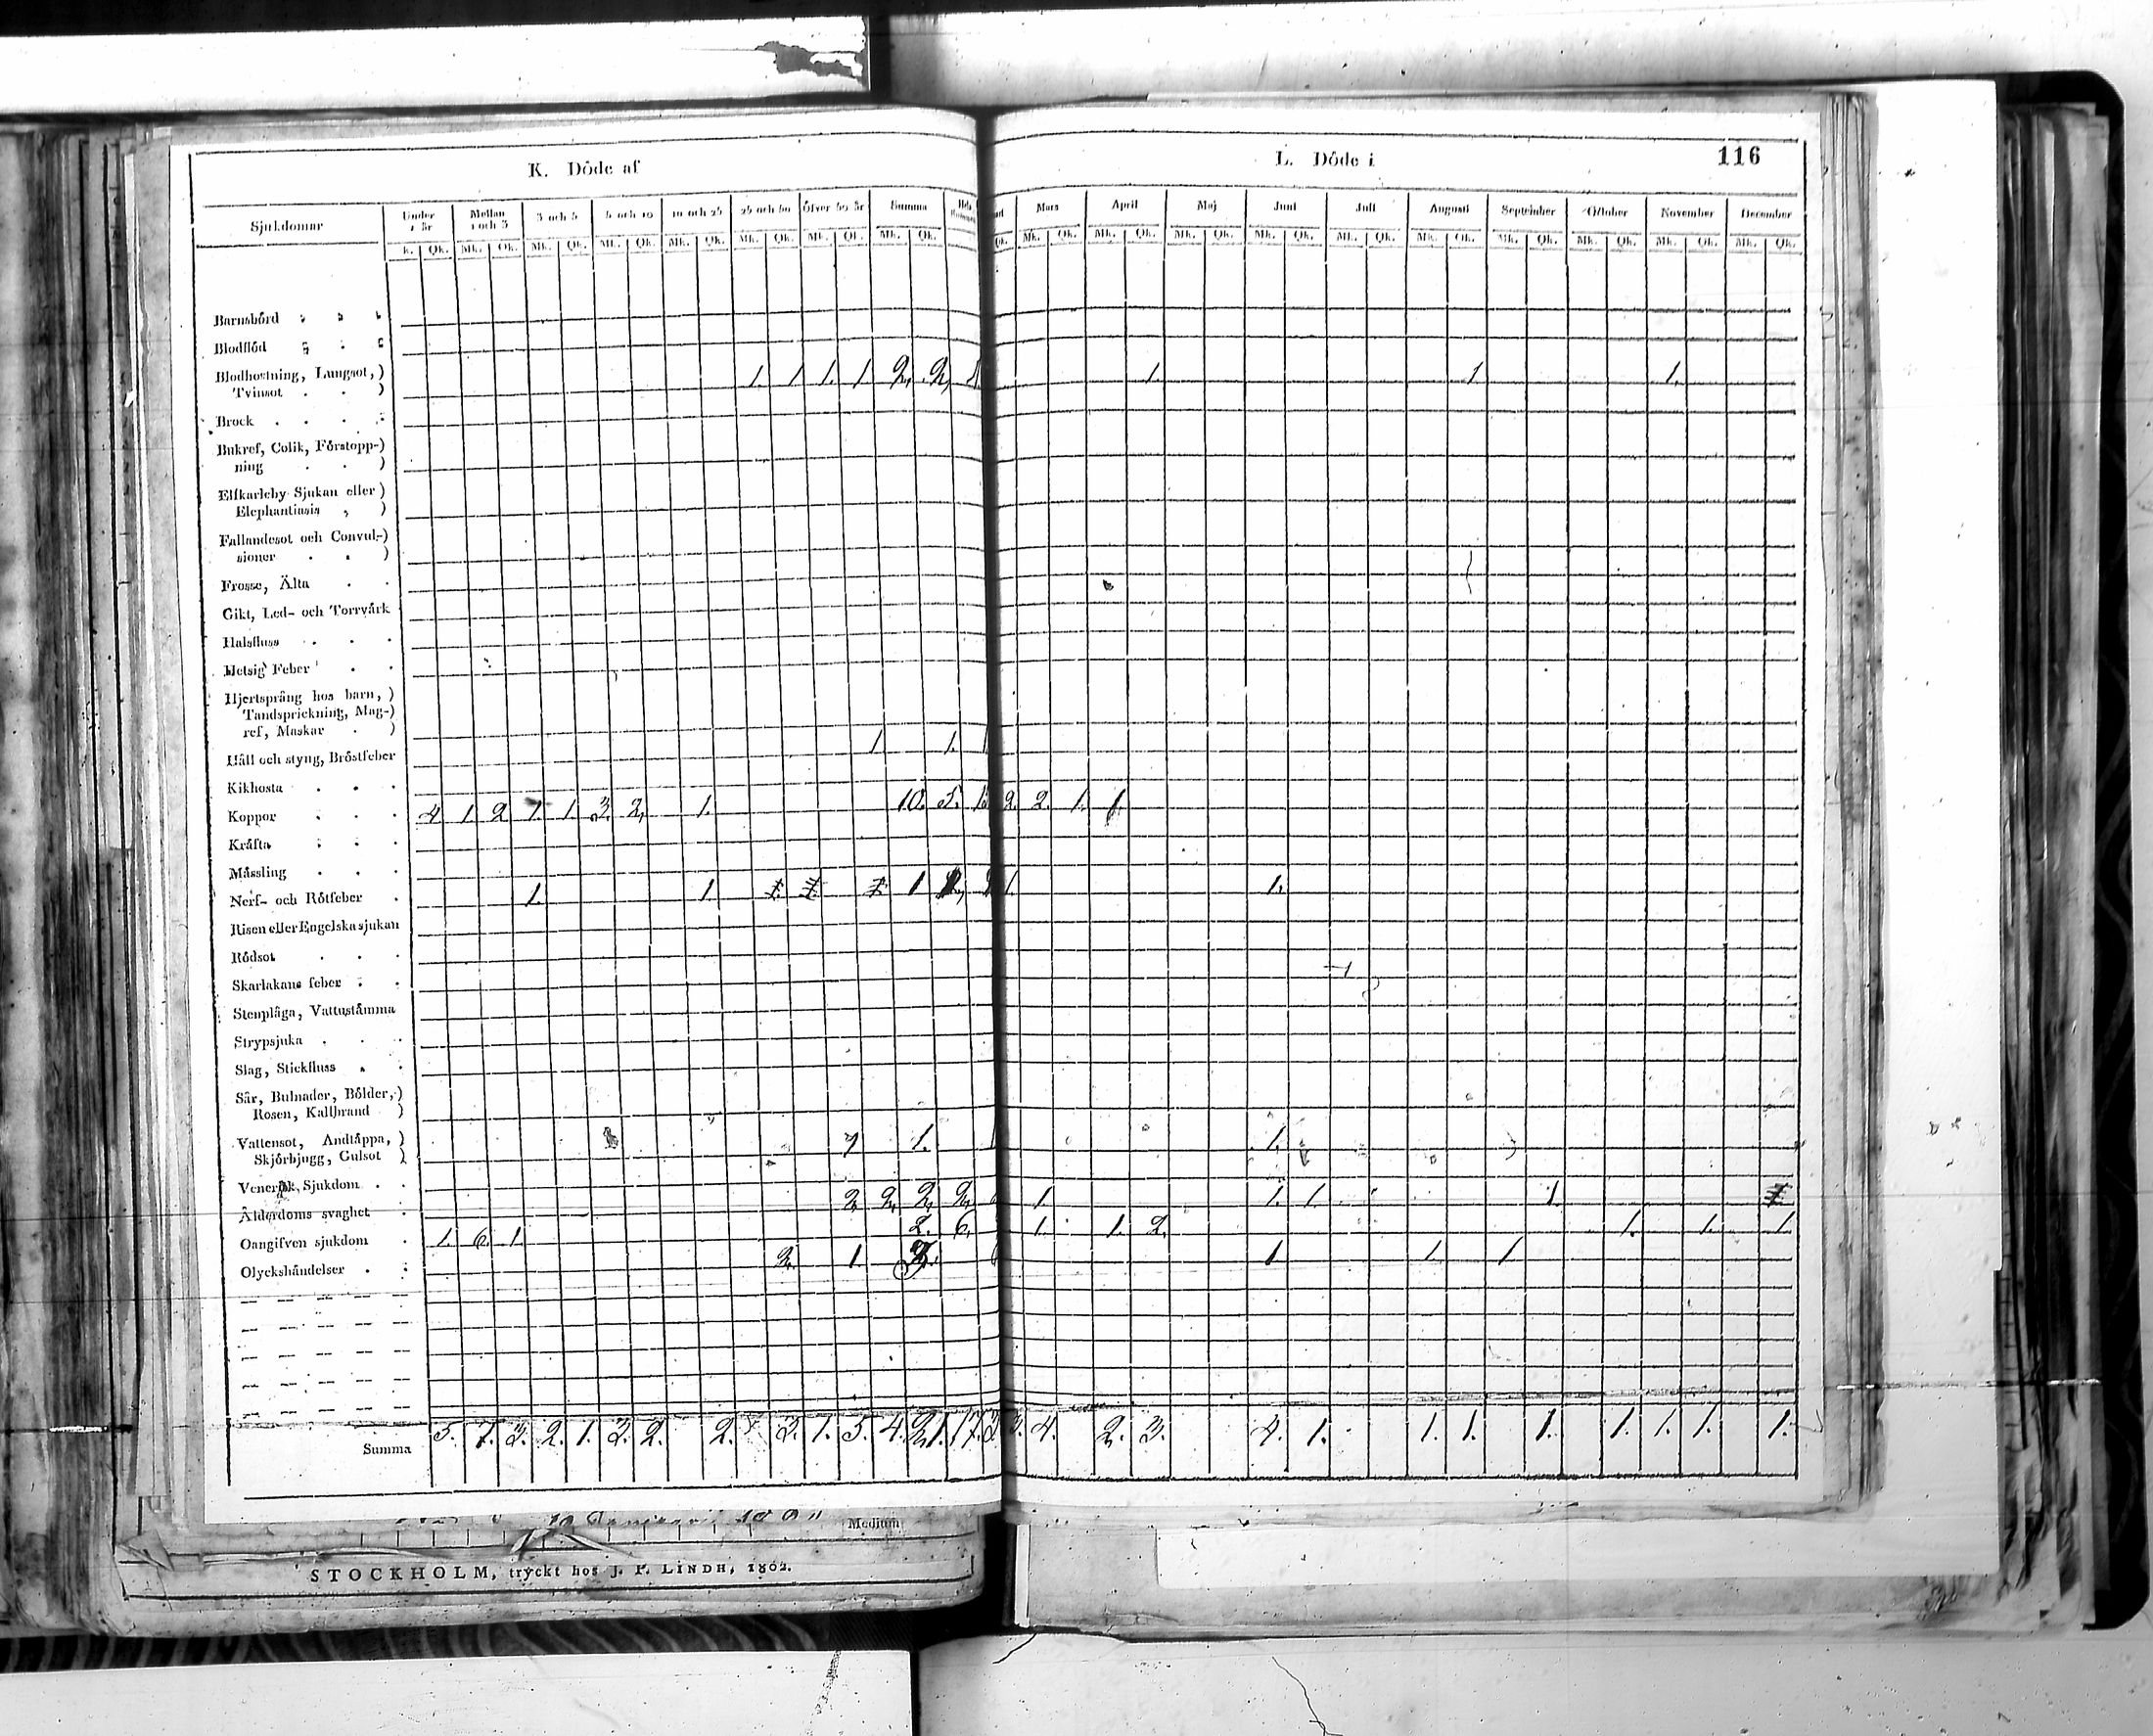 K. Döde af
L. Döde i
116
Sjukdomar Under 1 år Mellan 1 och 3 3 och 5 5 och 10 10 och 25 25 och 50 Öfver 50 år Summa Hela
Mars April Maj Junii Julii Augusti September October November December
k. Qk. Mk. Qk. Mk. Qk. Mk. Qk. Mk. Qk. Mk. Qk. Mk. Qk. Mk. Qk.
Qk. Mk. Qk. Mk. Qk. Mk. Qk. Mk. Qk. Mk. Qk. Mk. Qk. Mk. Qk. Mk. Qk. Mk. Qk. Mk. Qk.
Barnsbörd
Blodflöd
Blodhostning, Lungsot, ) 1. 1 1. 1 2. 2, 1. 1 1.
Tvinsot )
Brock
Bukref, Colik, Förstopp-)
ning )
Elfkarleby Sjukan eller )
Elephantiasis )
Fallandesot och Convul-)
sioner )
Frosse, Älta
Gikt, Led- och Torrvärk
Halsfluss
Hetsig Feber
Hjertsprång hos barn, )
Tandsprickning, Mag-)
ref, Maskar )
Håll och styng, Bröstfeber 1 1. 1
Kikhosta
Koppor 4 1. 2 1. 1. 3. 2, 1. 10. 5. 2. 2. 1. 1.
Kräfta
Mässling
Nerf- och Rötfeber 1. 1. 1 1. 1.
Risen eller Engelska sjukan
Rödsot
Skarlakans feber
Stenplåga, Vattustämma
Strypsjuka
Slag, Stickfluss
Sår, Bulnader, Bölder,)
Rosen, Kallbrand )
Vattensot, Andtäppa, ) 1. 1.
Skjörbjugg, Gulsot )
Venerisk Sjukdom
Ålderdoms svaghet 2, 2, 2, 2, 1. 1. 1. 1.
Oangifven sjukdom 1. 6. 1. 2. 6. 1. 1. 2. 1. 1. 1.
Olyckshändelser 2, 1. 3. 1. 1. 1.
Summa 5. 7. 3. 2. 1. 3. 2. 2. 3. 1. 5. 4. 21. 17. 3. 4. 2. 3. 4. 1. 1. 1. 1. 1. 1. 1. 1.
Medium
STOCKHOLM, tryckt hos J. P. LINDH, 1802.